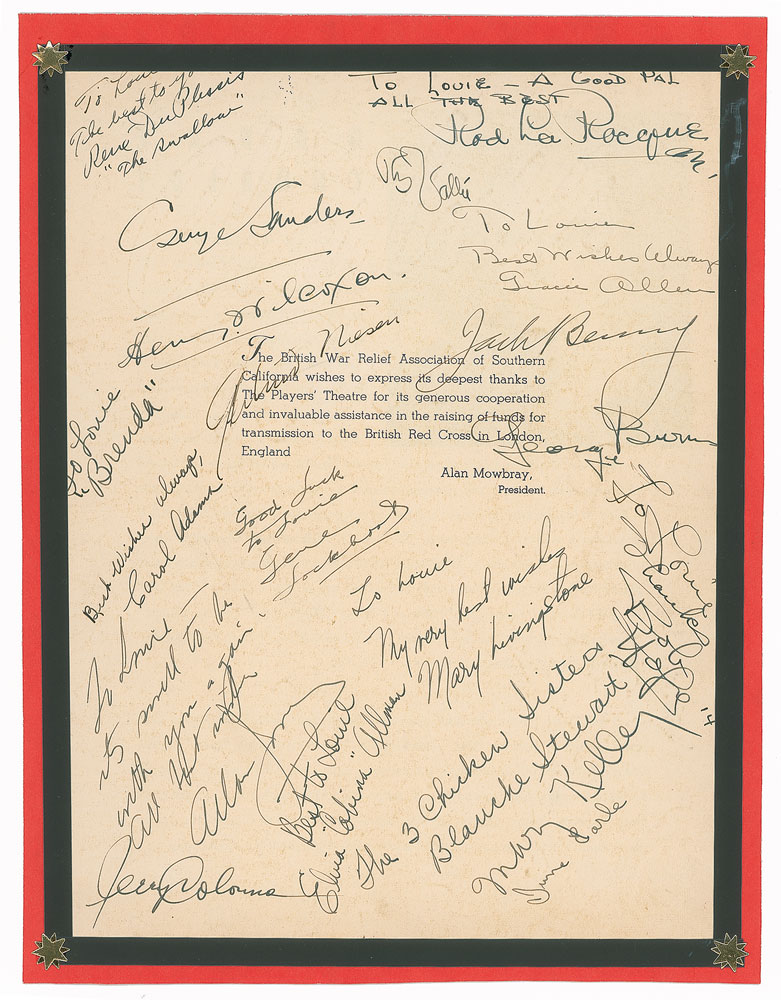 To Louie
The best to you
René Du Plessis
"The Swallow"
To Louie - A Good Pal
All The Best
Rod La Rocque
Vallée
George Sanders
To Louie
Best Wishes Always
Gracie Allen
Henry Wilcoxon.
Niesen
Jack Benny
The British War Relief Association of Southern
California wishes to express its deepest thanks to
The Players' Theatre for its generous cooperation
and invaluable assistance in the raising of funds for
transmission to the British Red Cross in London,
England
Alan Mowbray,
President.
George Burns
To Louie
"Brenda"
Best Wishes always,
Carol Adams
Good Luck
to Louie
Gene
Lockhart
To Louie
Thanks
To Louie
My very best wishes
Mary Livingstone
To Louie -
its swell to be
with you again.
All best wishes
Best to Louie
Elvia "Cobina" Allman
The 3 Chicken Sisters
Blanche Stewart
Mary Kelley
June Earle
Jerry Colonna
14